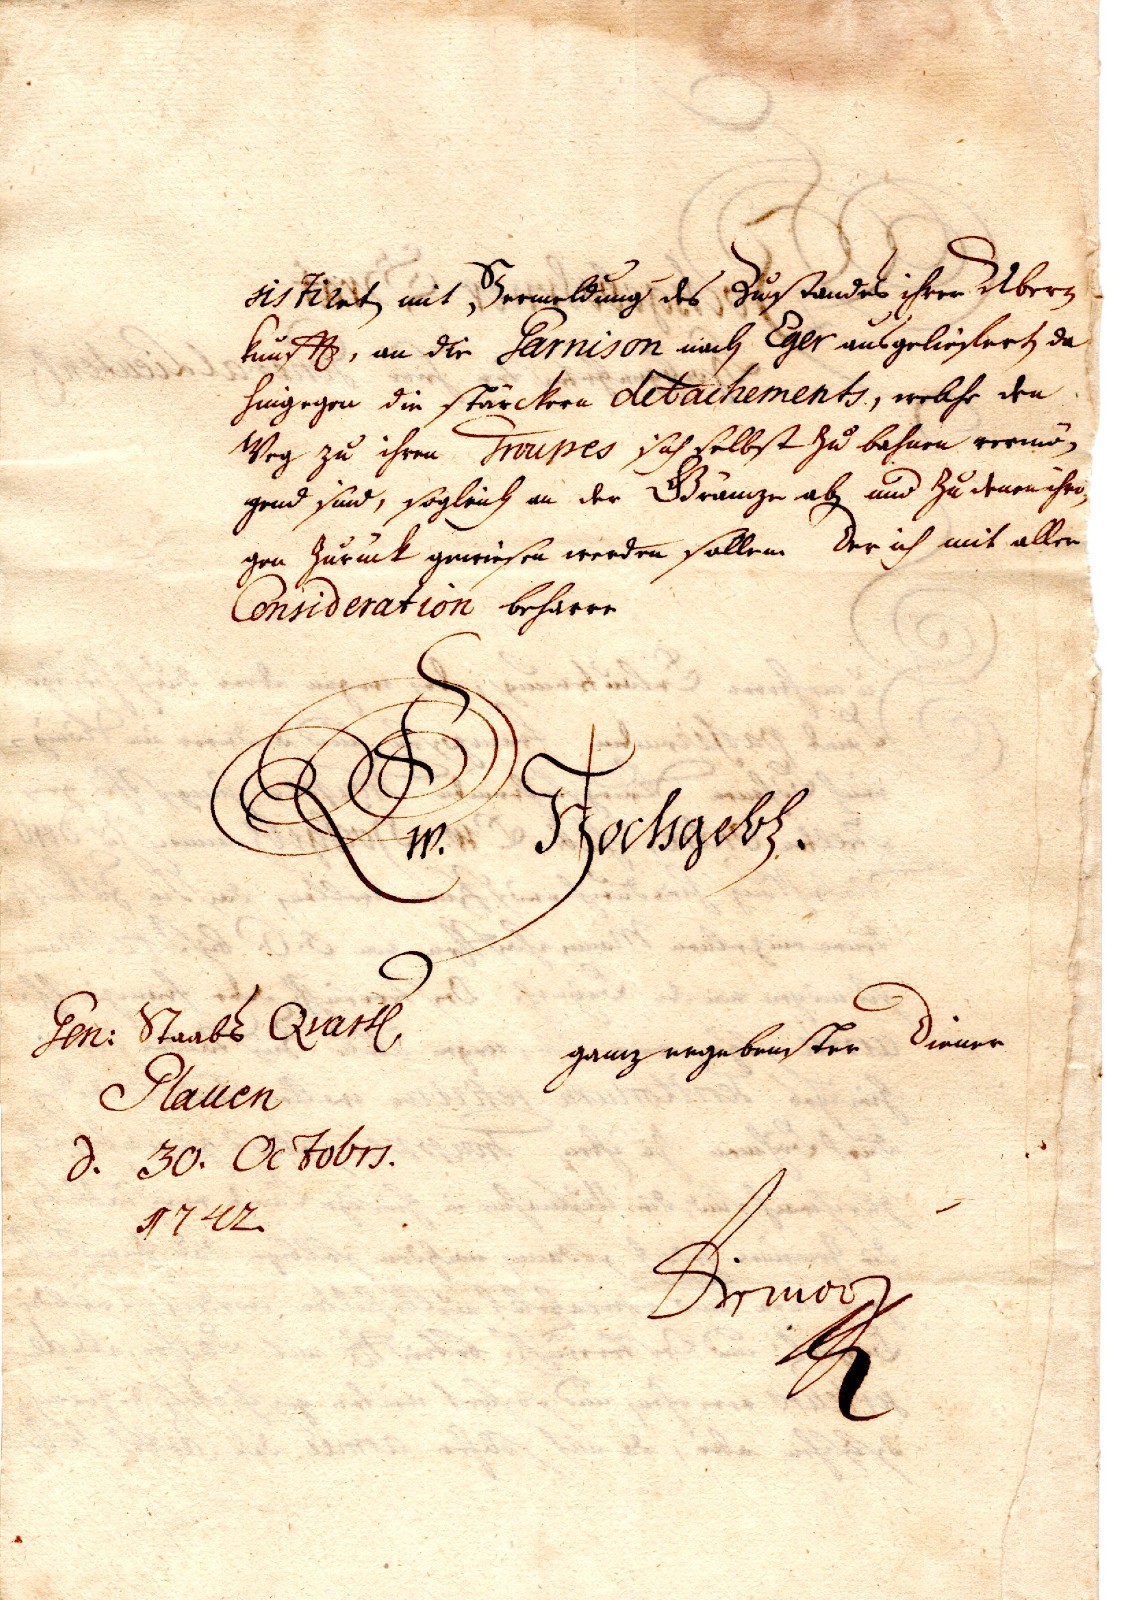 sistiret, mit Vermeldung des Zustandes ihrer Uber-
kunfft, an die Garnison nach Eger ausgeliefert, da
hingegen die stärckern detachements, welche den
Weg zu ihren Troupes sich selbst zu bahnen vermö-
gend sind, sogleich an der Gräntze ab und zu denen ihri-
gen zurück gewiesen werden sollen. Der ich mit aller
Consideration beharre
Ew. Hochgeb.
Gen: Staabs Quartl.
ganz ergebenster Diener
Plauen
d. 30. Octobrs.
1742.